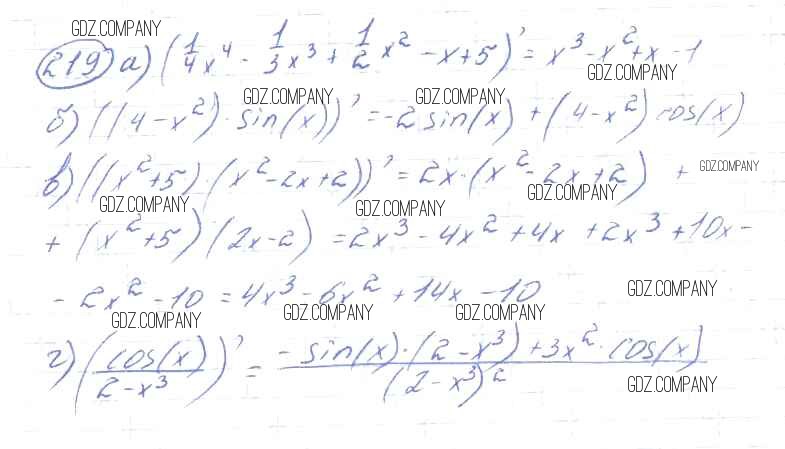 GDZ.COMPANY
219 а) (1/4 x⁴ - 1/3 x³ + 1/2 x² - x + 5)' = x³ - x² + x - 1
GDZ.COMPANY
GDZ.COMPANY GDZ.COMPANY
б) ((4 - x²) · sin(x))' = -2 sin(x) + (4 - x²) cos(x)
в) ((x² + 5) · (x² - 2x + 2))' = 2x · (x² - 2x + 2) +
GDZ.COMPANY
GDZ.COMPANY GDZ.COMPANY GDZ.COMPANY
+ (x² + 5) (2x - 2) = 2x³ - 4x² + 4x + 2x³ + 10x -
- 2x² - 10 = 4x³ - 6x² + 14x - 10
GDZ.COMPANY
GDZ.COMPANY GDZ.COMPANY GDZ.COMPANY
г) (cos(x) / (2 - x³))' = (- sin(x) · (2 - x³) + 3x² · cos(x)) / (2 - x³)²
GDZ.COMPANY